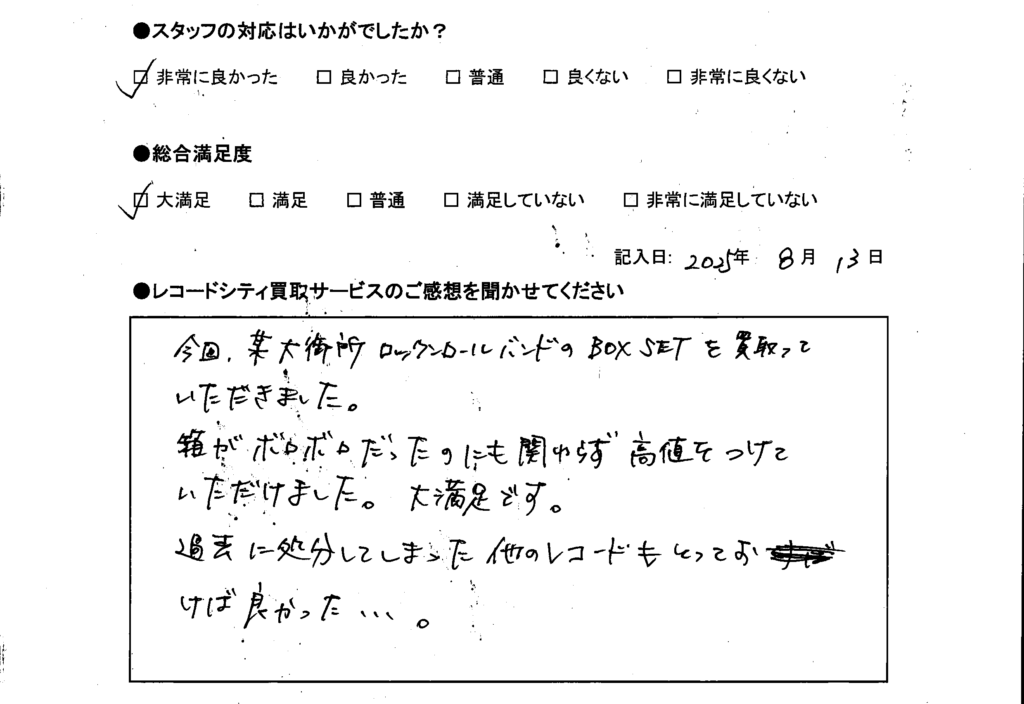 ●スタッフの対応はいかがでしたか？
☑ 非常に良かった □ 良かった □ 普通 □ 良くない □ 非常に良くない
●総合満足度
☑ 大満足 □ 満足 □ 普通 □ 満足していない □ 非常に満足していない
記入日: 2025年 8月 13日
●レコードシティ買取サービスのご感想を聞かせてください
今回、某大御所ロックンロールバンドのBOX SETを買取って
いただきました。
箱がボロボロだったのにも関わらず高値をつけて
いただけました。大満足です。
過去に処分してしまった他のレコードもとってお
けば良かった...。